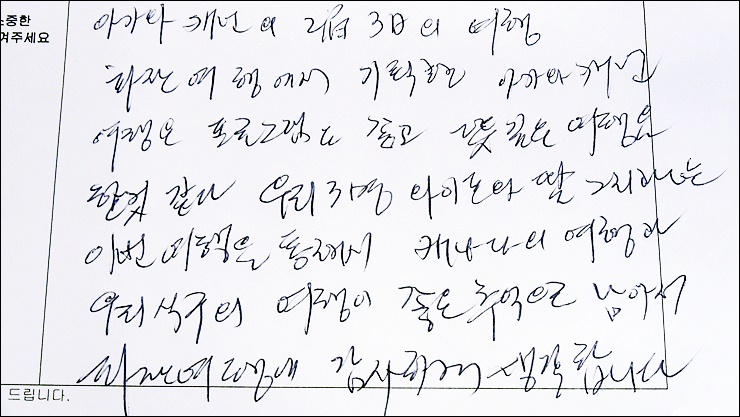 소중한
여주세요
아가와 캐년의 2泊 3日의 여행
화잔여행에서 기획한 아가와 캐년
여행은 프로그램도 좋고 멋 있는 여행을
한것 같다 우리 가령 와이프와 딸 그리고 나는
이번 여행을 통해서 캐나다의 여행과
우리 식구의 여행이 좋은 추억으로 남아서
화잔여행에 감사하게 생각합니다
드립니다.